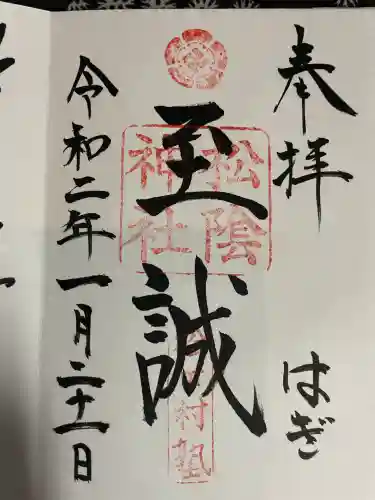 奉拝
はぎ
松陰
神社
至誠
松下村塾
令和二年一月二十一日